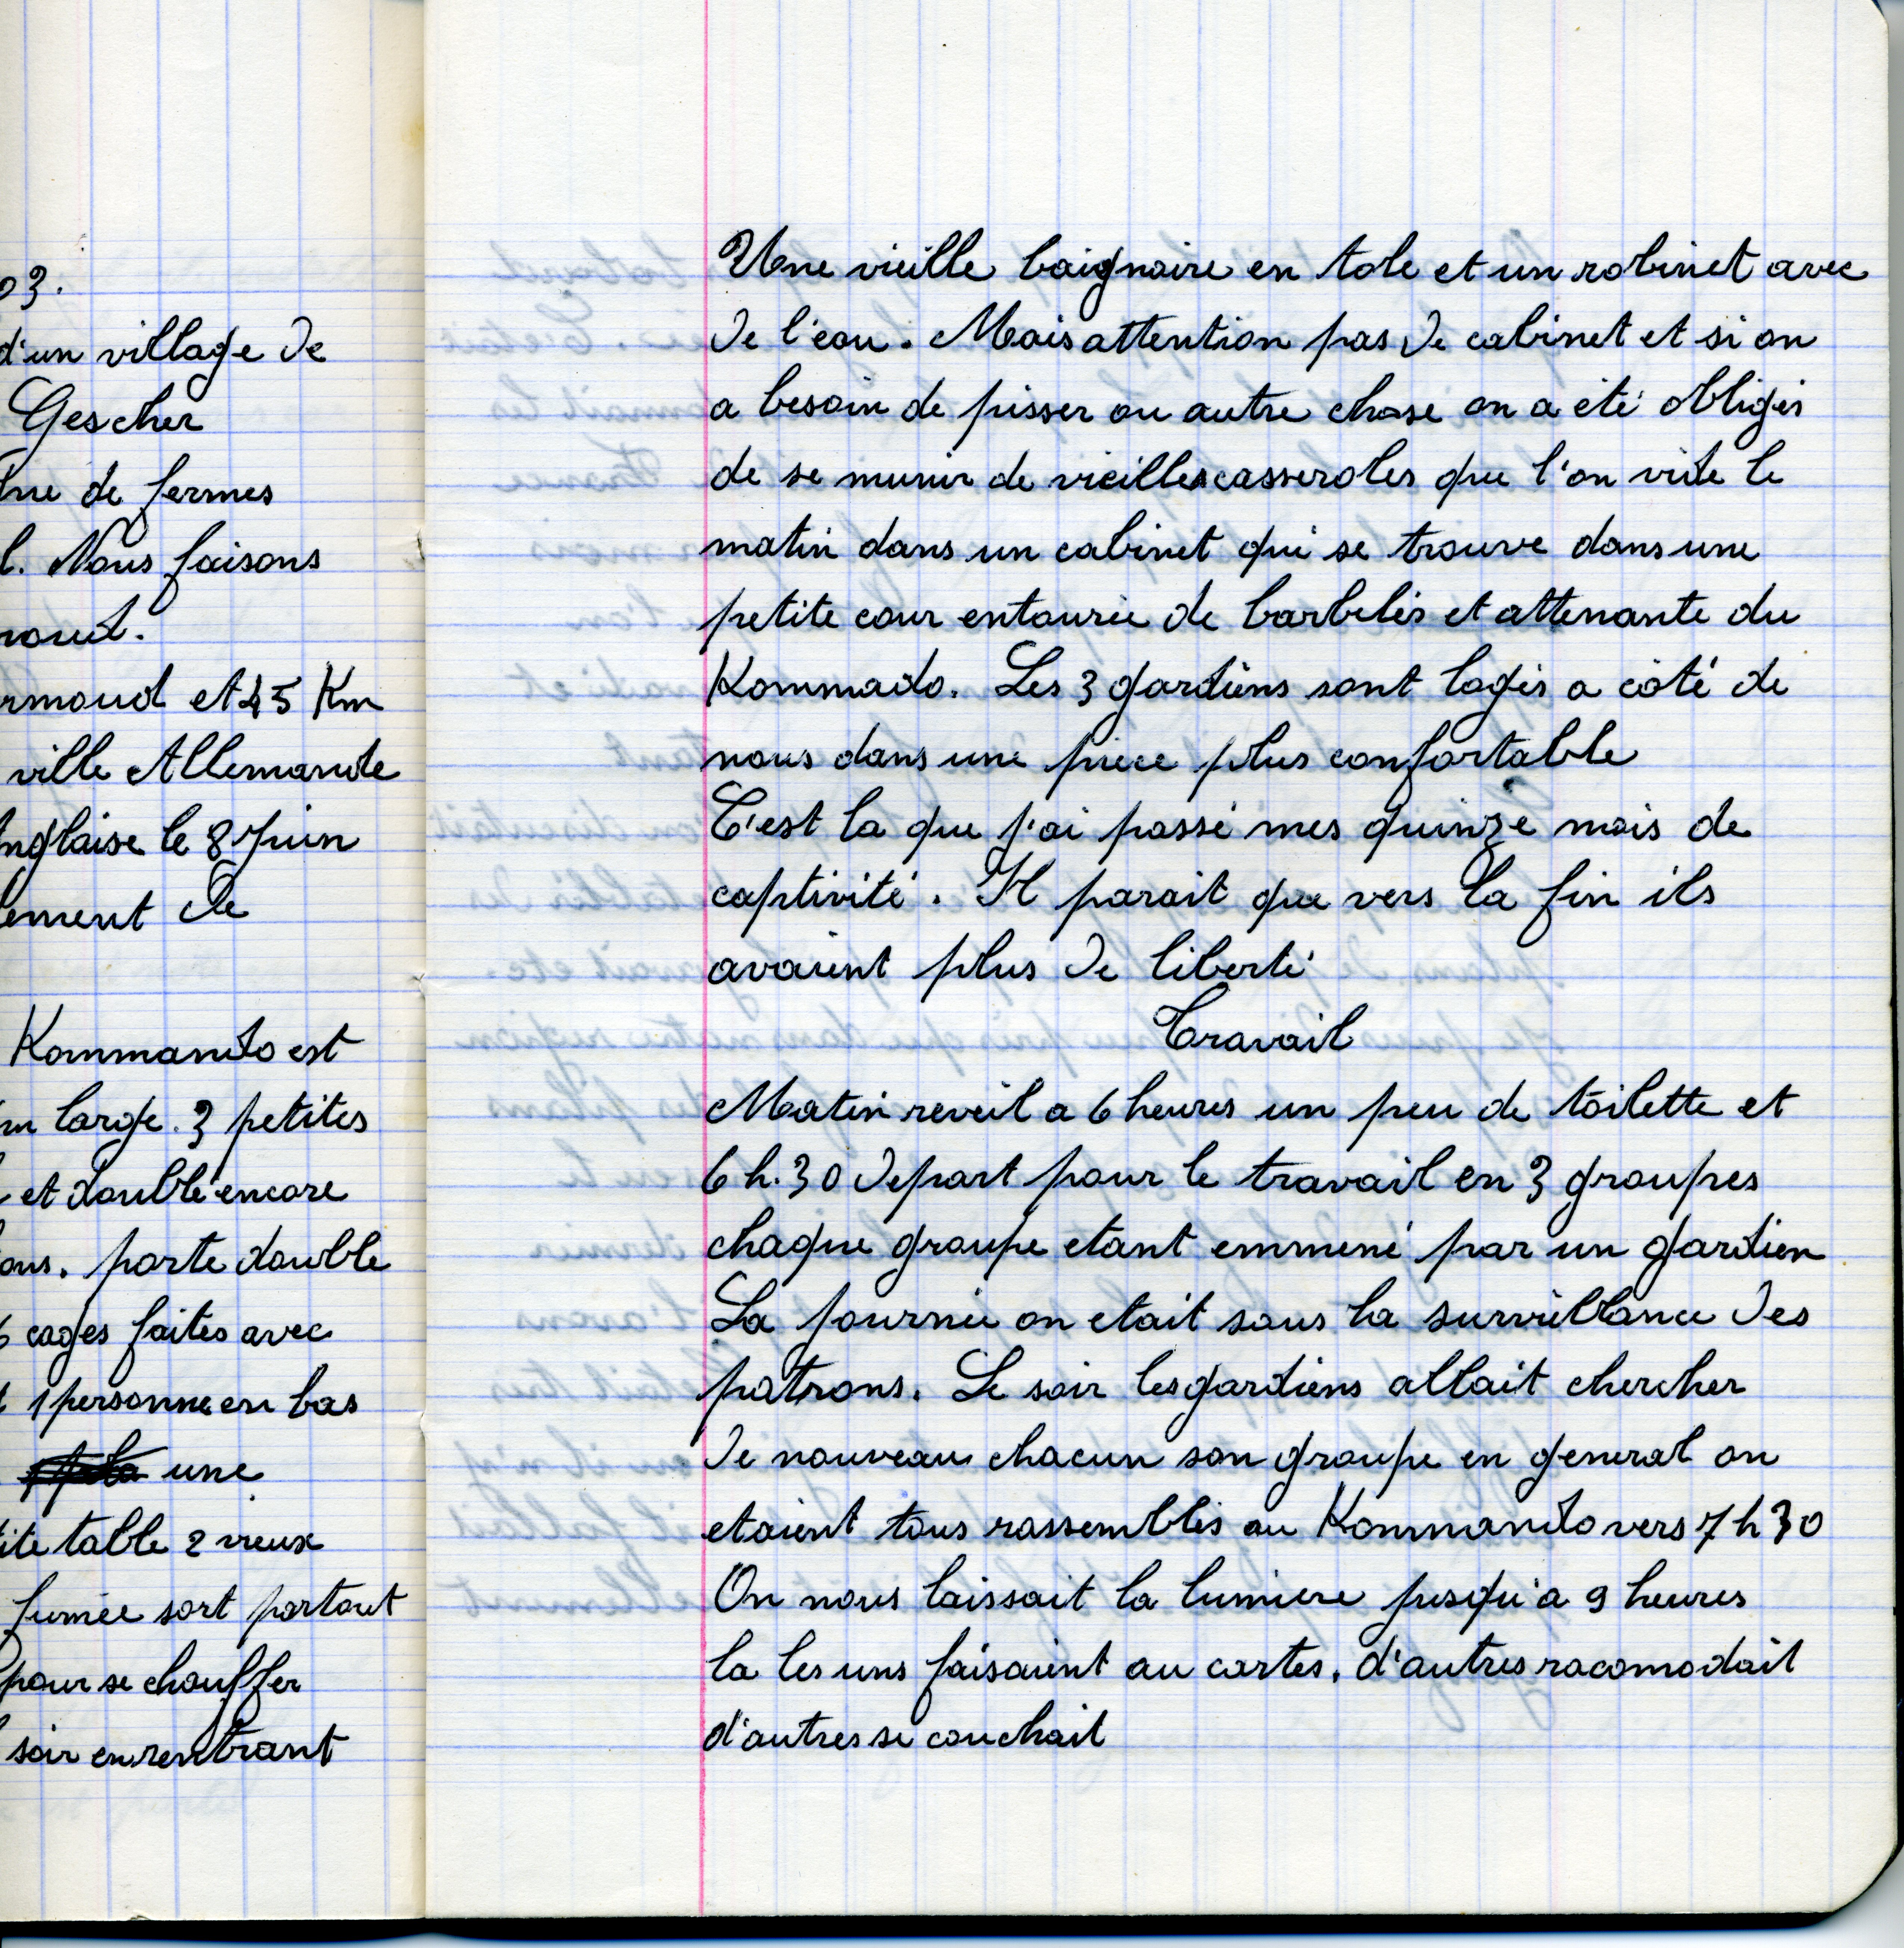 03.
d'un village de
Gescher
de fermes
l. Nous faisons
et 45 Km
ville Allemande
le 8 Juin
de
Kommando est
large. 3 petites
et doublé encore
porte double
6 cages faites avec
1 personne en bas
une
table 2 vieux
fumée sort partout
pour se chouffer
soir en rentrant
Une vieille baignaire en tole et un robinet avec
de l'eau. Mais attention pas de cabinet et si on
a besoin de pisser ou autre chose on a été obligés
de se munir de vieilles casseroles que l'on vide le
matin dans un cabinet qui se trouve dans une
petite cour entourée de barbelés et attenante du
Kommado. Les 3 gardiens sont logés a côté de
nous dans une piece plus confortable
C'est la que j'ai passé mes quinze mois de
captivité. Il parait que vers la fin ils
avaient plus de liberté
Travail
Matin reveil a 6 heures un peu de toilette et
6 h. 30 depart pour le travail en 3 groupes
chaque groupe etant emmené par un gardien
La journée on etait sous la surveillance des
patrons. Le soir les gardiens allait chercher
de nouveau chacun son groupe en general on
etaient tous rassemblés au Kommando vers 7 h 30
On nous laissait la lumiere jusqu'a 9 heures
la les uns faisaient au cartes. d'autres racomodait
d'autres se couchait